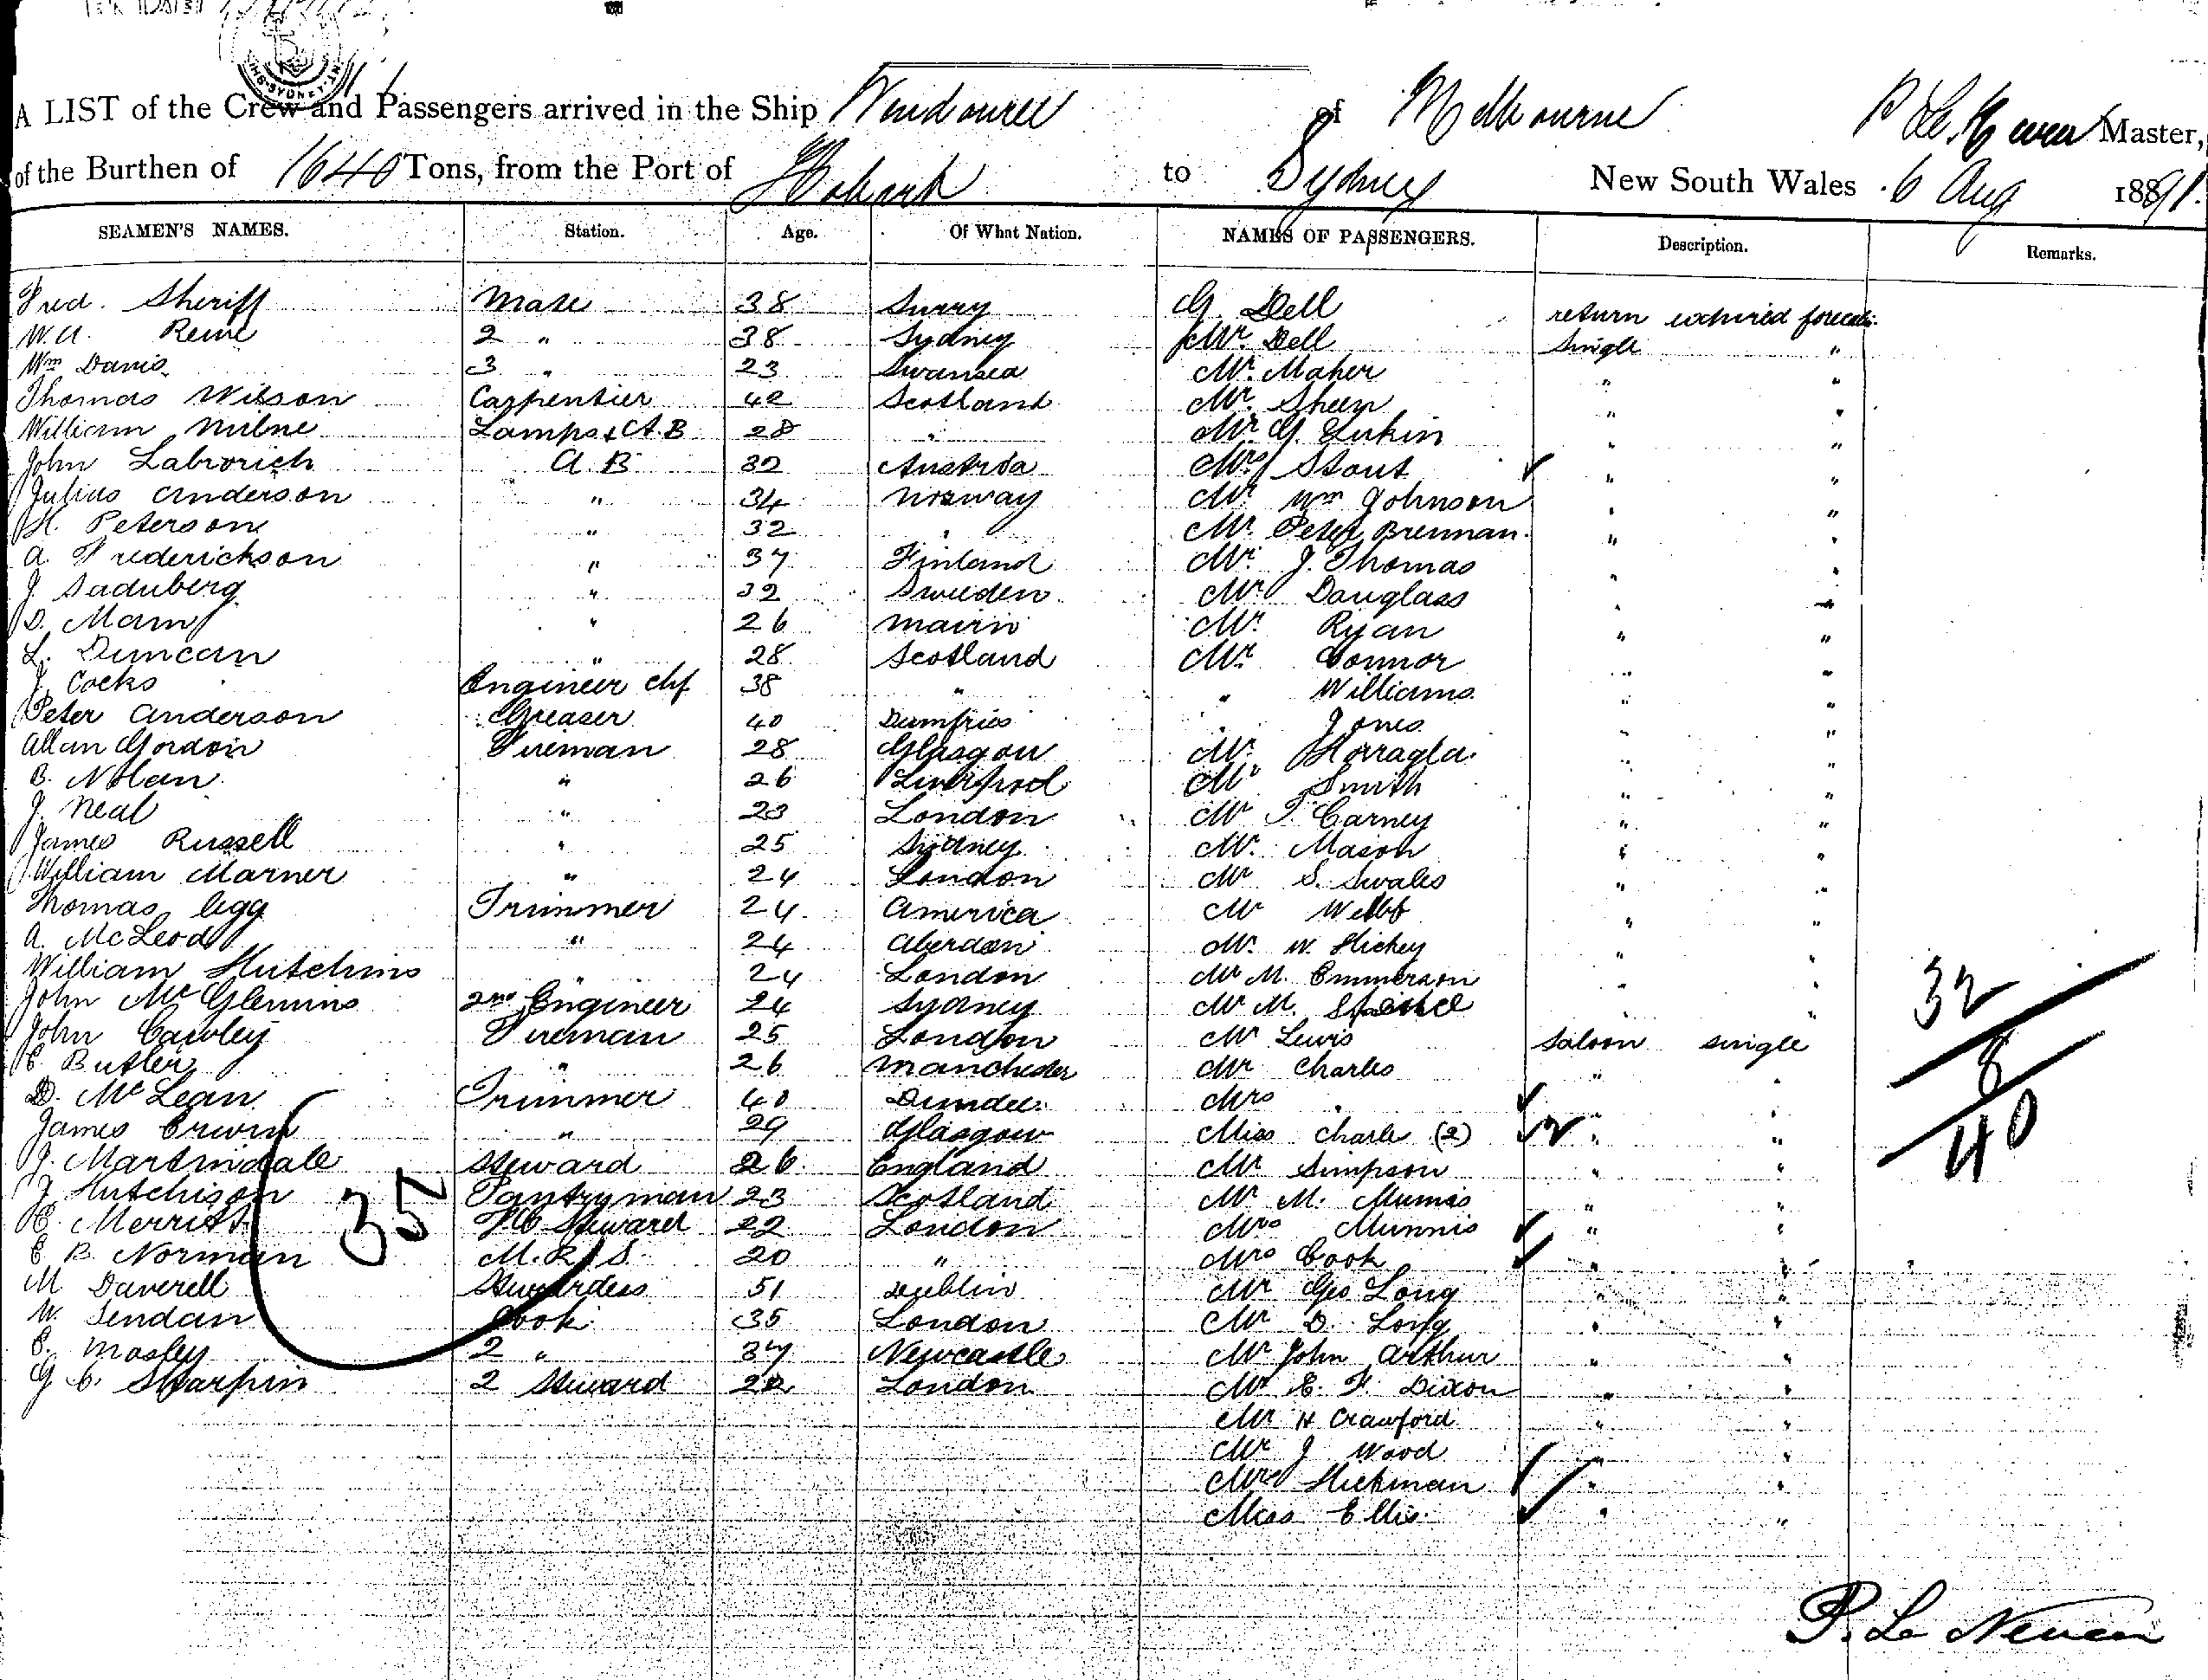 A LIST of the Crew and Passengers arrived in the Ship Wendouree of Melbourne Master,
of the Burthen of 1640 Tons, from the Port of Hobart to Sydney New South Wales 6 Aug 1891.
SEAMEN'S NAMES. Station. Age. Of What Nation. NAMES OF PASSENGERS. Description. Remarks.
Fred. Sheriff Mate 38 Surry G. Dell return
W.A. 2 " 38 Sydney Mr. Dell single "
Wm Davis 3 " 23 Swansea Mr. Maher " "
Thomas Wilson Carpentier 42 Scotland Mr. Sheen " "
William Milne Lamps & A.B. 28 " Mr G. Lukin " "
John Labrorich A.B. 32 Austria Mrs Stout " "
Julius Anderson " 34 Norway Mr Wm Johnson " "
H. Peterson " 32 " Mr. Peter Brennan " "
A. Frederickson " 37 Finland Mr. J. Thomas " "
J. Saduberg " 32 Sweden Mr Douglass " "
D. Mam " 26 Mr. Ryan " "
L. Duncan " 28 Scotland Mr. Connor " "
J. Cocks Engineer chf 38 " " Williams " "
Peter Anderson Greaser 40 Dumfries " Jones " "
Allan Gordon Fireman 28 Glasgow Mr. " "
B. Nolan " 26 Liverpool Mr Smith " "
J. Neal " 23 London Mr T. Carney " "
James Russell " 25 Sydney Mr. Mason " "
William Marner " 24 London Mr S. Swales " "
Thomas Legg Trimmer 24 America Mr Webb " "
A. McLeod " 24 Aberdeen Mr. W. Hickey " "
William Hutchins " 24 London Mr M. Emmerson " " 32
John McGlennins 2nd Engineer 24 Sydney Mr M. " "
John Cawley Fireman 25 London Mr Lewis Saloon single
E. Butler " 26 Manchester Mr Charles " " 8
D. McLean Trimmer 40 Dundee Mrs " " "
James Erwin " 29 Glasgow Miss Charles (2) 2 " " 40
J. Martindale Steward 26 England Mr Simpson " "
J. Hutchison 35 Pantryman 23 Scotland Mr M. Munnis " "
E. Merritt F.C. Steward 22 London Mrs Munnis " "
E B. Norman M.R.S. 20 " Mrs Cook " "
M Daverell Stewardess 51 Dublin Mr Geo Long " "
W. Sendan Cook 35 London Mr D. Long " "
E. Mosley 2 " 37 Newcastle Mr John Arthur " "
G C. Sharpin 2 Steward 22 London Mr E. F. Dixon " "
Mr H Crawford " "
Mr J Wood " "
Mrs Hickman " "
Miss Ellis " "
P. Le Neveu